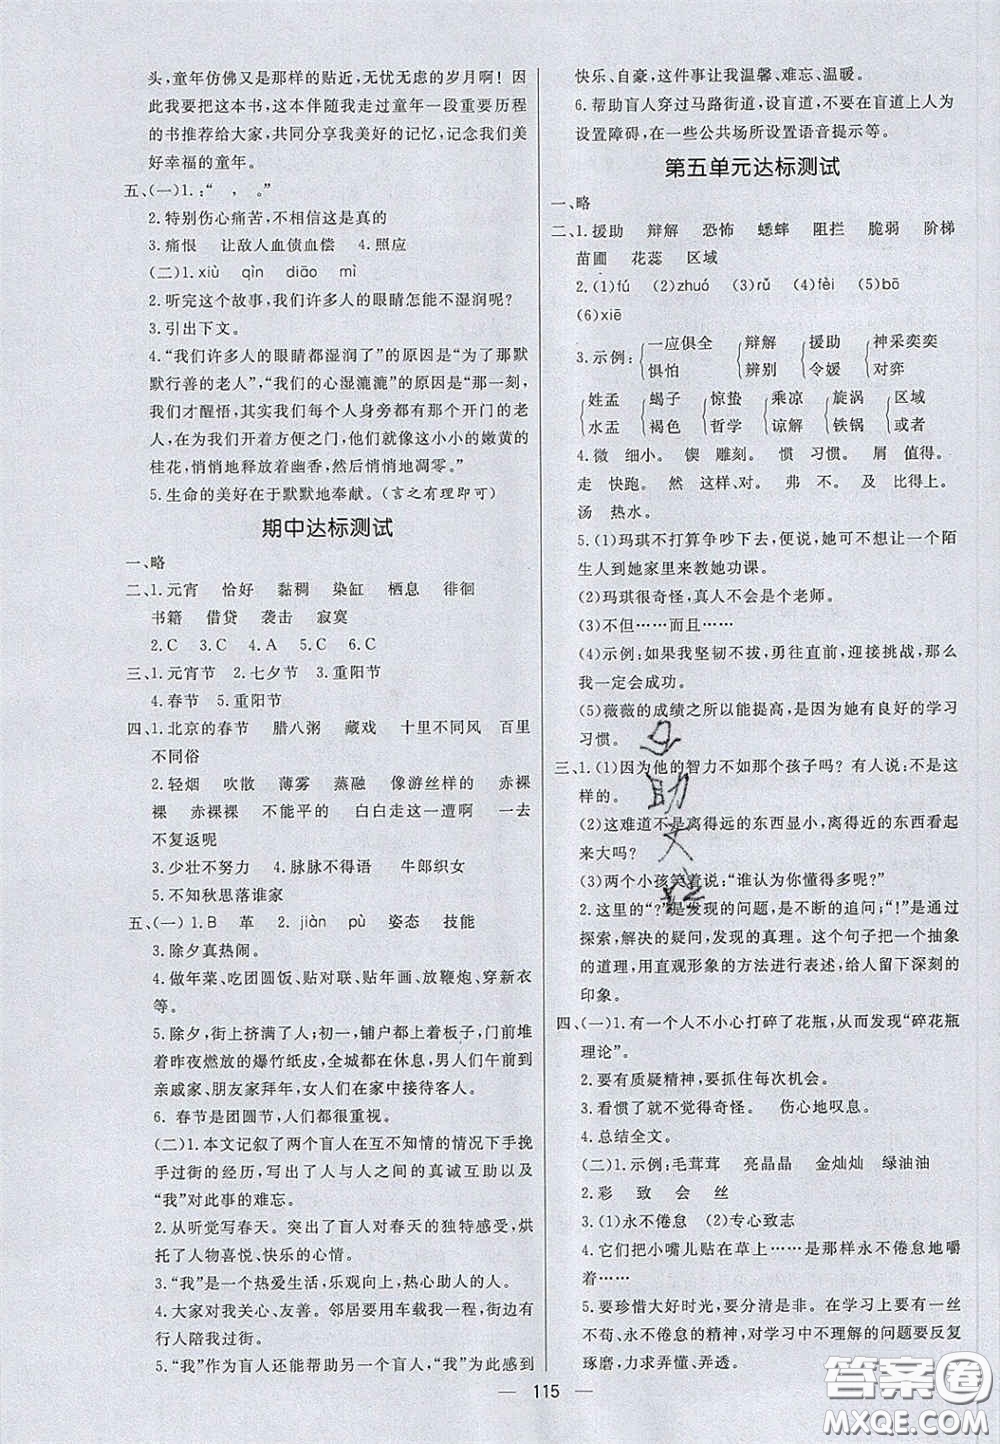 头,童年仿佛又是那样的贴近,无忧无虑的岁月啊!因
此我要把这本书,这本伴随我走过童年一段重要历程
的书推荐给大家,共同分享我美好的记忆,记念我们美
好幸福的童年。
五、(一)1.:“ , 。”
2.特别伤心痛苦,不相信这是真的
3.痛恨 让敌人血债血偿 4.照应
(二)1.xiù qìn diāo mì
2.听完这个故事,我们许多人的眼睛怎能不湿润呢?
3.引出下文。
4.“我们许多人的眼睛都湿润了”的原因是“为了那默
默行善的老人”,“我们的心湿漉漉”的原因是“那一刻,
我们才醒悟,其实我们每个人身旁都有那个开门的老
人,在为我们开着方便之门,他们就像这小小的嫩黄的
桂花,悄悄地释放着幽香,然后悄悄地凋零。”
5.生命的美好在于默默地奉献。(言之有理即可)
期中达标测试
一、略
二、1.元宵 恰好 黏稠 染缸 栖息 徘徊
书籍 借贷 袭击 寂寞
2.C 3.C 4.A 5.C 6.C
三、1.元宵节 2.七夕节 3.重阳节
4.春节 5.重阳节
四、1.北京的春节 腊八粥 藏戏 十里不同风 百里
不同俗
2.轻烟 吹散 薄雾 蒸融 像游丝样的 赤裸
裸 赤裸裸 不能平的 白白走这一遭啊 一去
不复返呢
3.少壮不努力 4.脉脉不得语 牛郎织女
5.不知秋思落谁家
五、(一)1.B 革 2.jiàn pù 姿态 技能
3.除夕真热闹。
4.做年菜、吃团圆饭、贴对联、贴年画、放鞭炮、穿新衣
等。
5.除夕,街上挤满了人;初一,铺户都上着板子,门前堆
着昨夜燃放的爆竹纸皮,全城都在休息,男人们午前到
亲戚家、朋友家拜年,女人们在家中接待客人。
6. 春节是团圆节,人们都很重视。
(二)1.本文记叙了两个盲人在互不知情的情况下手挽
手过街的经历,写出了人与人之间的真诚互助以及
“我”对此事的难忘。
2.从听觉写春天。写出了盲人对春天的独特感受,烘
托了人物喜悦、快乐的心情。
3.“我”是一个热爱生活,乐观向上,热心助人的人。
4.大家对我关心、友善。邻居要用车载我一程;街边有
行人陪我过街。
5.“我”作为盲人还能帮助另一个盲人,“我”为此感到
快乐、自豪,这件事让我温馨、难忘、温暖。
6.帮助盲人穿过马路街道,设盲道,不要在盲道上人为
设置障碍,在一些公共场所设置语音提示等。
第五单元达标测试
一、略
二、1.援助 辩解 恐怖 蟋蟀 阻拦 脆弱 阶梯
苗圃 花蕊 区域
2.(1)fú (2)zhuó (3)rǔ (4)fèi (5)bō
(6)xiē
3.示例: 一应俱全 辩解 援助 神采奕奕
惧怕 辨别 令媛 对弈
姓孟 蝎子 惊蛰 乘凉 旋涡 区域
水盂 褐色 哲学 谅解 铁锅 或者
4.微 细小。 锲 雕刻。 惯 习惯。 屑 值得。
走 快跑。 然 这样、对。 弗 不。 及 比得上。
汤 热水。
5.(1)玛琪不打算争吵下去,便说,她只想看到一个陌
生人到她家里来教她功课。
(2)玛琪很奇怪,真人不会是个老师。
(3)不但……而且……
(4)示例:如果我坚韧不拔,勇往直前,迎接挑战,那么
我一定会成功。
(5)薇薇的成绩之所以能提高,是因为她有良好的学习
习惯。
三、1.(1)因为他的智力不如那个孩子吗? 有人说:不是这
样的。
(2)这难道不是离得远的东西显小,离得近的东西看起
来大吗?
(3)两个小孩笑着说:“谁认为你懂得多呢?”
2.这里的“?”是发现的问题,是不断的追问;“!”是通过
探索,解决的疑问,发现的真理。这个句子把一个抽象
的道理,用直观形象的方法进行表述,给人留下深刻的
印象。
四、(一)1.有一个人不小心打碎了花瓶,从而发现“碎花瓶
理论”。
2.要有质疑精神,要抓住每次机会。
3.看惯了就不觉得奇怪。 伤心地叹息。
4.总结全文。
(二)1.示例:毛茸茸 亮晶晶 金灿灿 绿油油
2.彩 致 会 丝
3.(1)永不倦怠 (2)专心致志
4.它们把小嘴儿贴在草上……是那样永不倦怠地嚼
着……
5.要珍惜大好时光,要分清是非。在学习上要有一丝
不苟、永不倦怠的精神,对学习中不理解的问题要反复
琢磨,力求弄懂、弄透。
115
答案圈
MXQE.COM